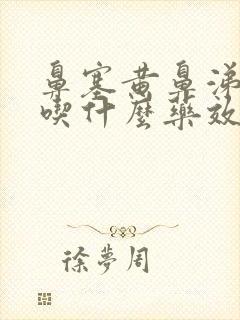 鼻塞黄鼻涕
喫什麼藥效
徐夢周